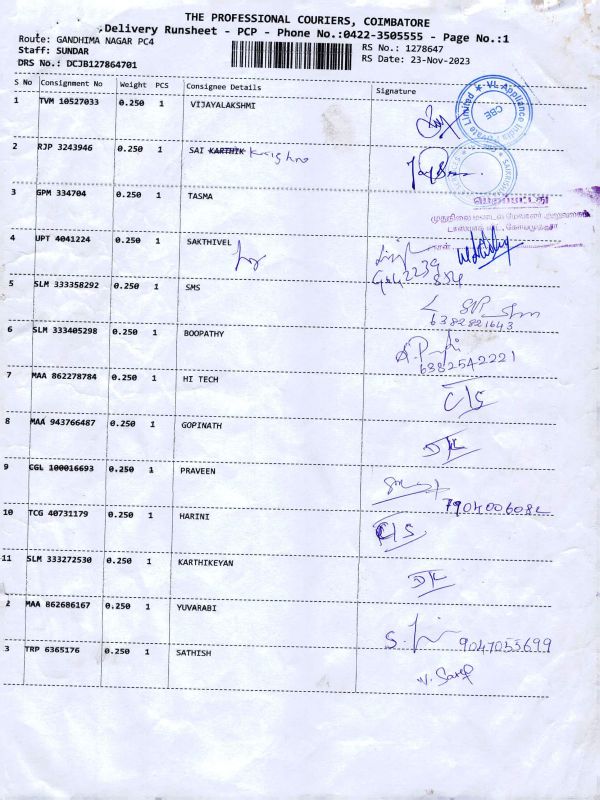 THE PROFESSIONAL COURIERS, COIMBATORE
Delivery Runsheet - PCP - Phone No.:0422-3505555 - Page No.:1
Route: GANDHIMA NAGAR PC4 RS No.: 1278647
Staff: SUNDAR RS Date: 23-Nov-2023
DRS No.: DCJB127864701
S No Consignment No Weight PCS Consignee Details Signature
1 TVM 10527033 0.250 1 VIJAYALAKSHMI
2 RJP 3243946 0.250 1 SAI KARTHIK Krishna
3 GPM 334704 0.250 1 TASMA
4 UPT 4041224 0.250 1 SAKTHIVEL
5 SLM 333358292 0.250 1 SMS
6382821643
6 SLM 333405298 0.250 1 BOOPATHY
6382542221
7 MAA 862278784 0.250 1 HI TECH
C/S
8 MAA 943766487 0.250 1 GOPINATH
DK
9 CGL 100016693 0.250 1 PRAVEEN
7904006082
10 TCG 40731179 0.250 1 HARINI
C/S
11 SLM 333272530 0.250 1 KARTHIKEYAN
DK
2 MAA 862686167 0.250 1 YUVARABI
9047055699
3 TRP 6365176 0.250 1 SATHISH